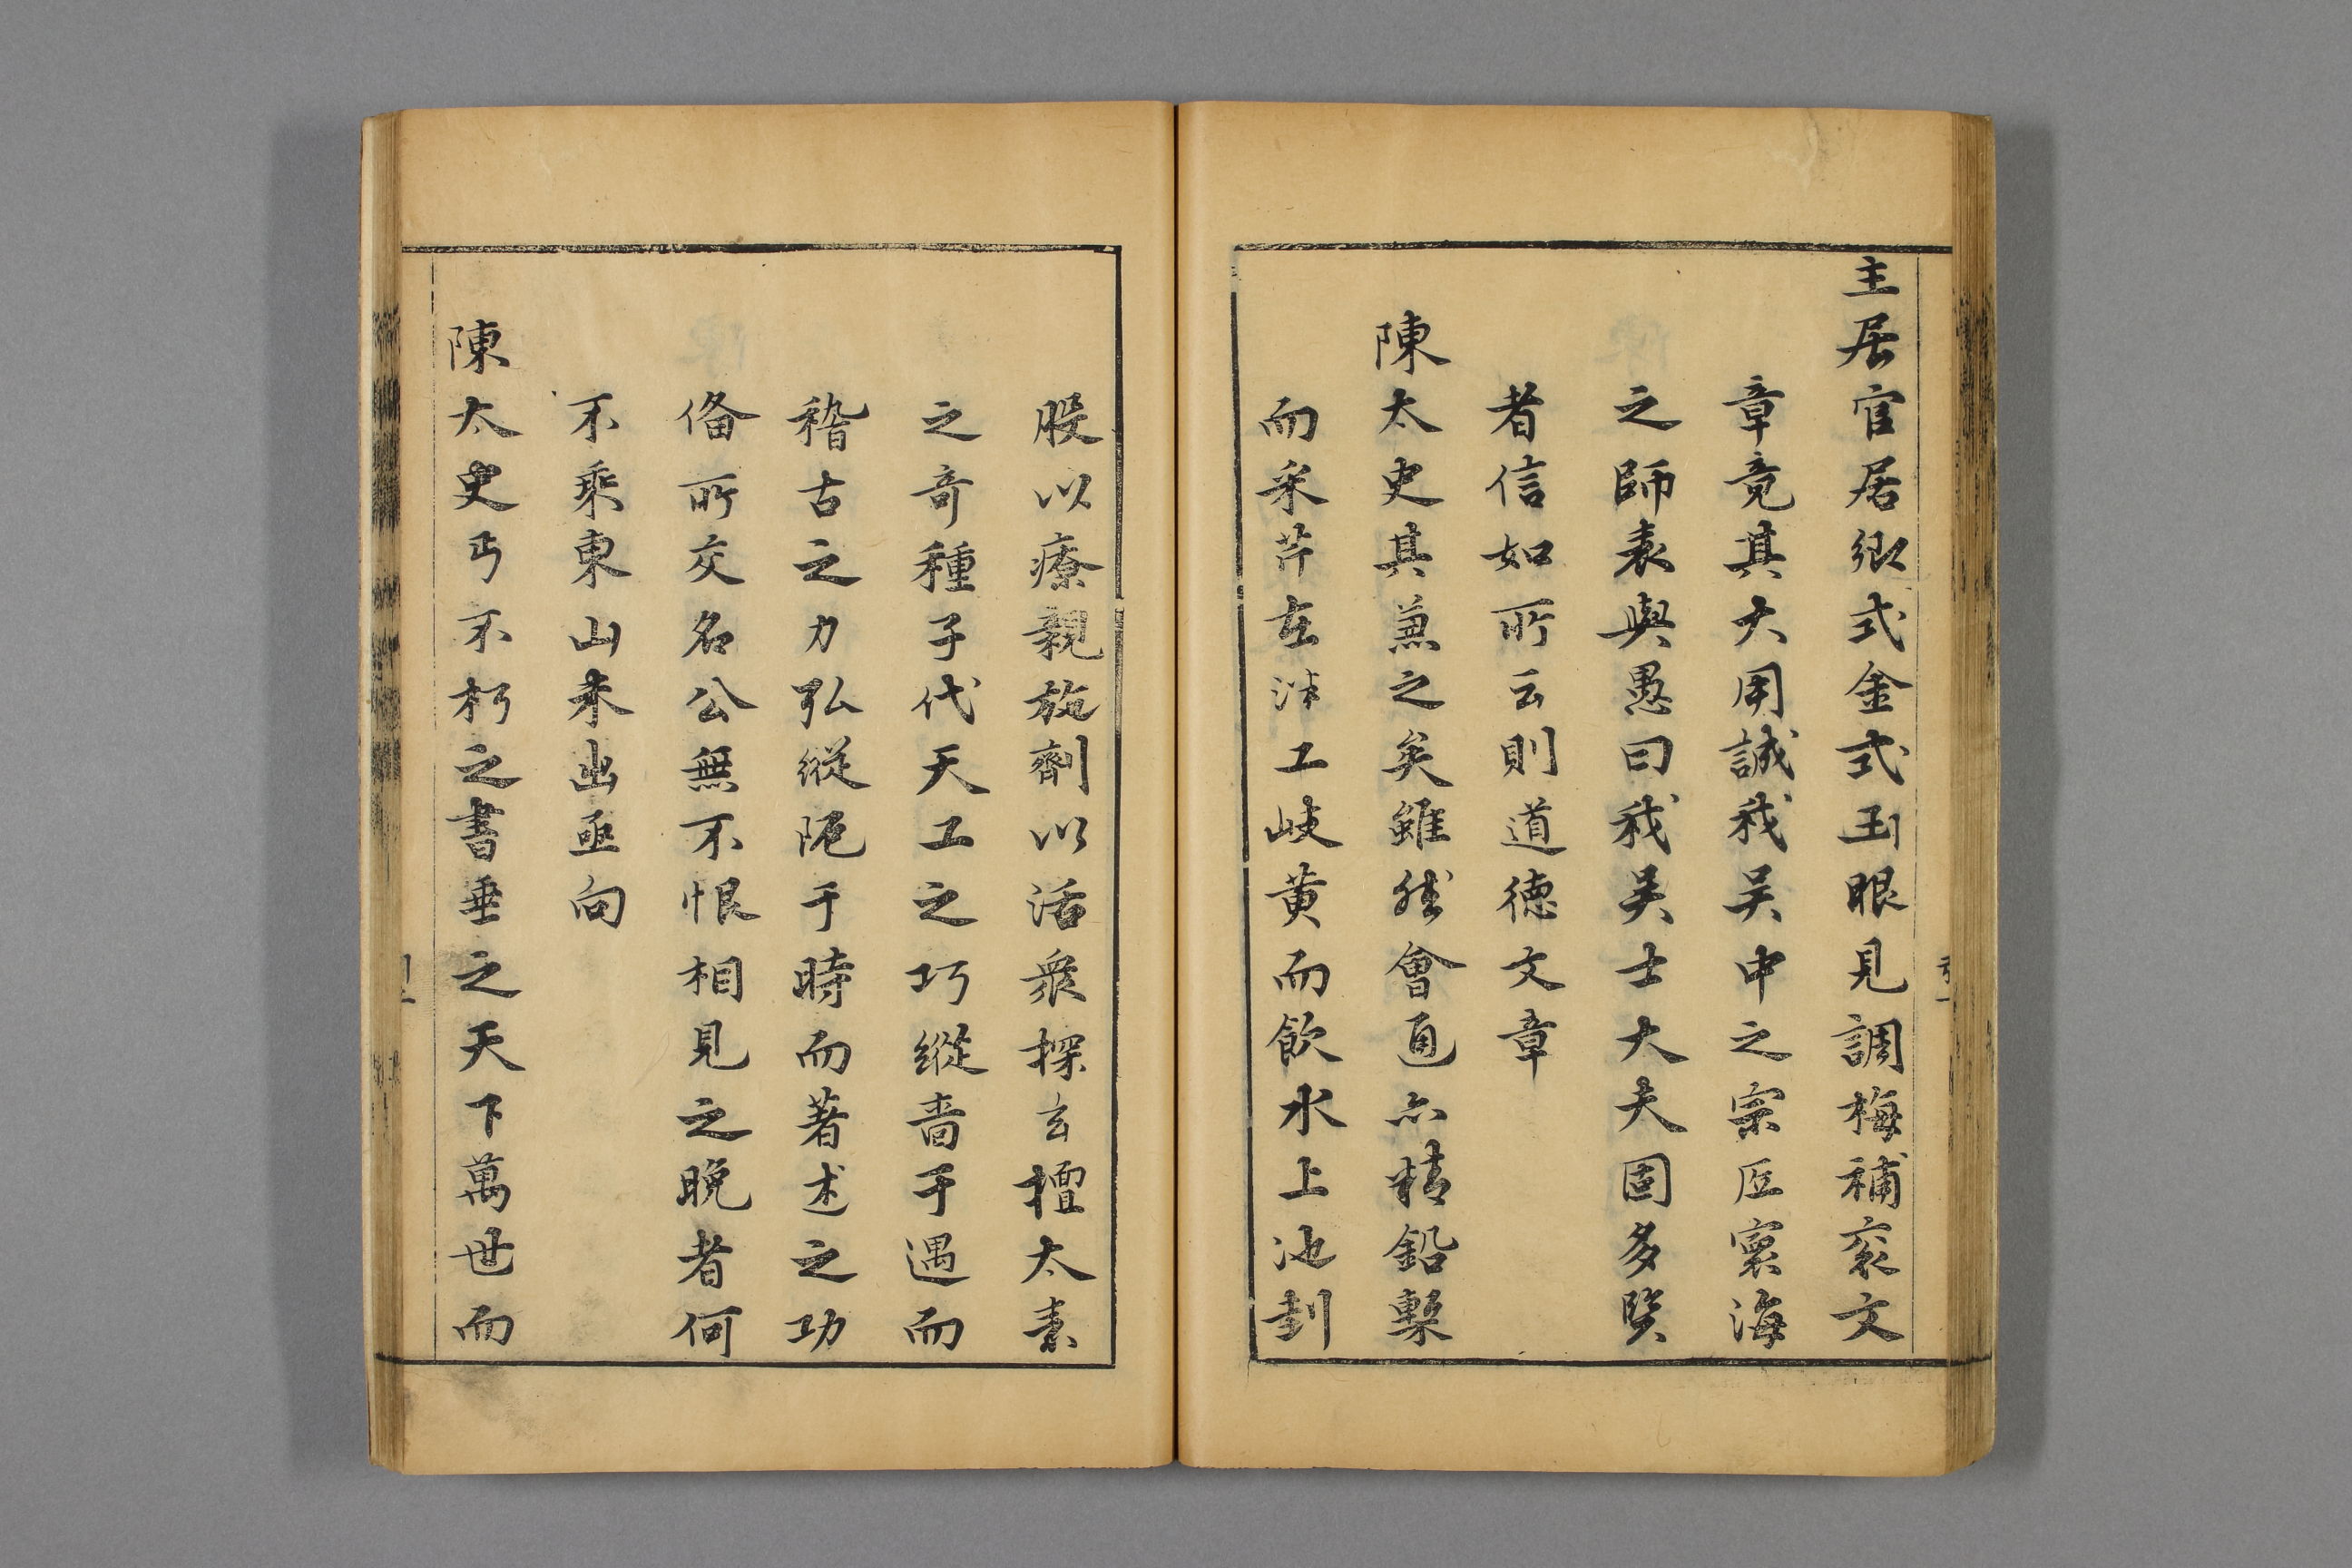 主居官居鄉式金式玉眼見調梅補袞文
章竟其大用誠我吴中之宗匠寰海
之師表與愚曰我吴士大夫固多賢
者信如所云則道德文章
陳太史其兼之矣雖然會通亦精鉛槧
而采芹在泮工岐黄而飲水上池刲
股以療親施劑以活衆探玄擅太素
之奇種子代天工之巧縱嗇于遇而
稽古之力弘縱阨于時而著述之功
俻所交名公無不恨相見之晚者何
不乘東山未出亟向
陳太史丐不朽之書垂之天下萬世而